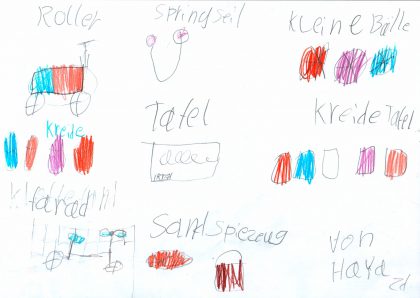 Roller
Springseil
Kleine Bälle
Kreide
Tafel
Kreide Tafel
Sandspiezeug
von
Haya
2d